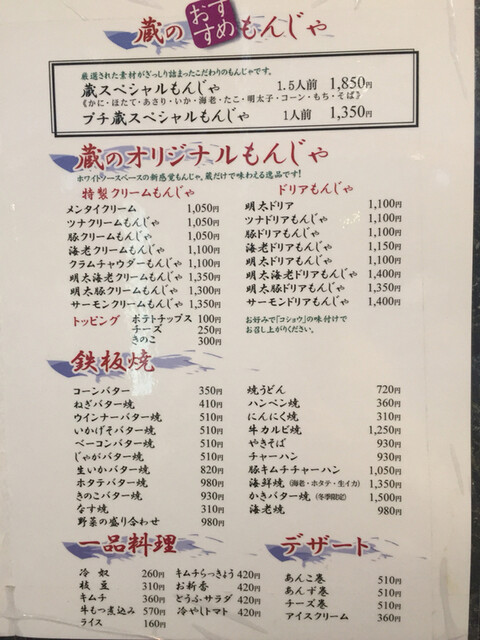 蔵のおすすめもんじゃ
厳選された素材がぎっしり詰まったこだわりのもんじゃです。
蔵スペシャルもんじゃ 1.5人前 1,850円
《かに・ほたて・あさり・いか・海老・たこ・明太子・コーン・もち・そば》
プチ蔵スペシャルもんじゃ 1人前 1,350円
蔵のオリジナルもんじゃ
ホワイトソースベースの新感覚もんじゃ。蔵だけで味わえる逸品です!
特製クリームもんじゃ
メンタイクリーム 1,050円
ツナクリームもんじゃ 1,050円
豚クリームもんじゃ 1,050円
海老クリームもんじゃ 1,100円
クラムチャウダーもんじゃ 1,100円
明太海老クリームもんじゃ 1,350円
明太豚クリームもんじゃ 1,300円
サーモンクリームもんじゃ 1,350円
トッピング ポテトチップス 100円
チーズ 250円
きのこ 300円
ドリアもんじゃ
明太ドリア 1,100円
ツナドリアもんじゃ 1,100円
豚ドリアもんじゃ 1,100円
海老ドリアもんじゃ 1,150円
明太ドリアもんじゃ 1,100円
明太海老ドリアもんじゃ 1,400円
明太豚ドリアもんじゃ 1,350円
サーモンドリアもんじゃ 1,400円
お好みで「コショウ」の味付けで
お召し上がりください。
鉄板焼
コーンバター 350円
ねぎバター焼 410円
ウインナーバター焼 510円
いかげそバター焼 510円
ベーコンバター焼 510円
じゃがバター焼 510円
生いかバター焼 820円
ホタテバター焼 980円
きのこバター焼 930円
なす焼 310円
野菜の盛り合わせ 980円
焼うどん 720円
ハンペン焼 360円
にんにく焼 310円
牛カルビ焼 1,250円
やきそば 930円
チャーハン 930円
豚キムチチャーハン 1,050円
海鮮焼(海老・ホタテ・生イカ) 1,350円
かきバター焼(冬季限定) 1,500円
海老焼 980円
一品料理
冷奴 260円
枝豆 310円
キムチ 360円
牛もつ煮込み 570円
ライス 160円
キムチらっきょう 420円
お新香 420円
とうふサラダ 420円
冷やしトマト 420円
デザート
あんこ巻 510円
あんず巻 510円
チーズ巻 510円
アイスクリーム 360円